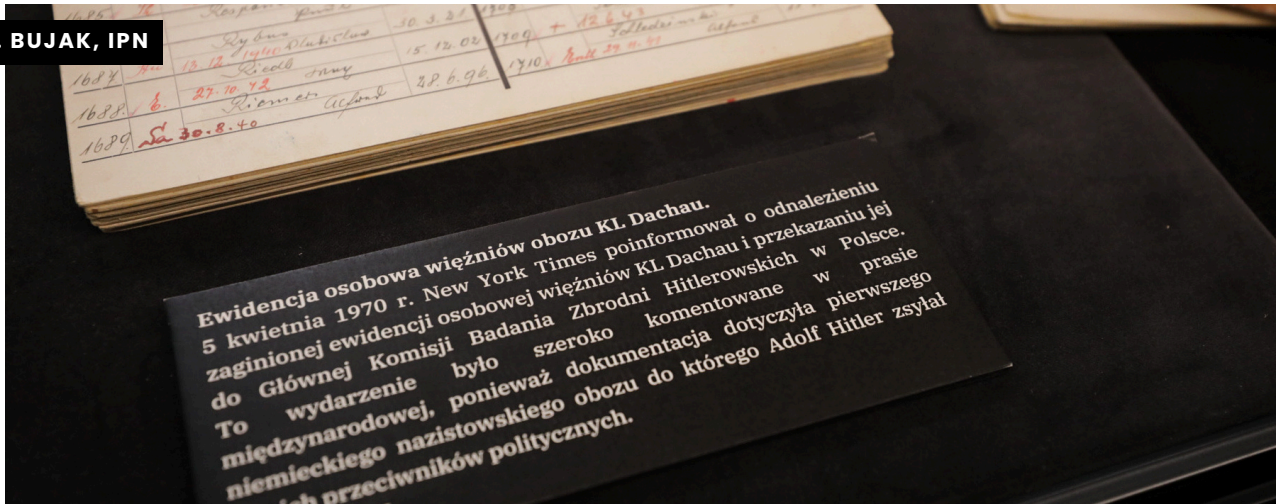 . BUJAK, IPN
1685
10.3.21 1909
+ 12.6.43
Rybus
13.12.1940
15.12.02 1709
1687
Riedl
27.10.42
28.6.96. 1710
1688. E.
Riemer
1689. 30.8.40
Ewidencja osobowa więźniów obozu KL Dachau.
5 kwietnia 1970 r. New York Times poinformował o odnalezieniu
zaginionej ewidencji osobowej więźniów KL Dachau i przekazaniu jej
do Głównej Komisji Badania Zbrodni Hitlerowskich w Polsce.
To wydarzenie było szeroko komentowane w prasie
międzynarodowej, ponieważ dokumentacja dotyczyła pierwszego
niemieckiego nazistowskiego obozu do którego Adolf Hitler zsyłał
przeciwników politycznych.